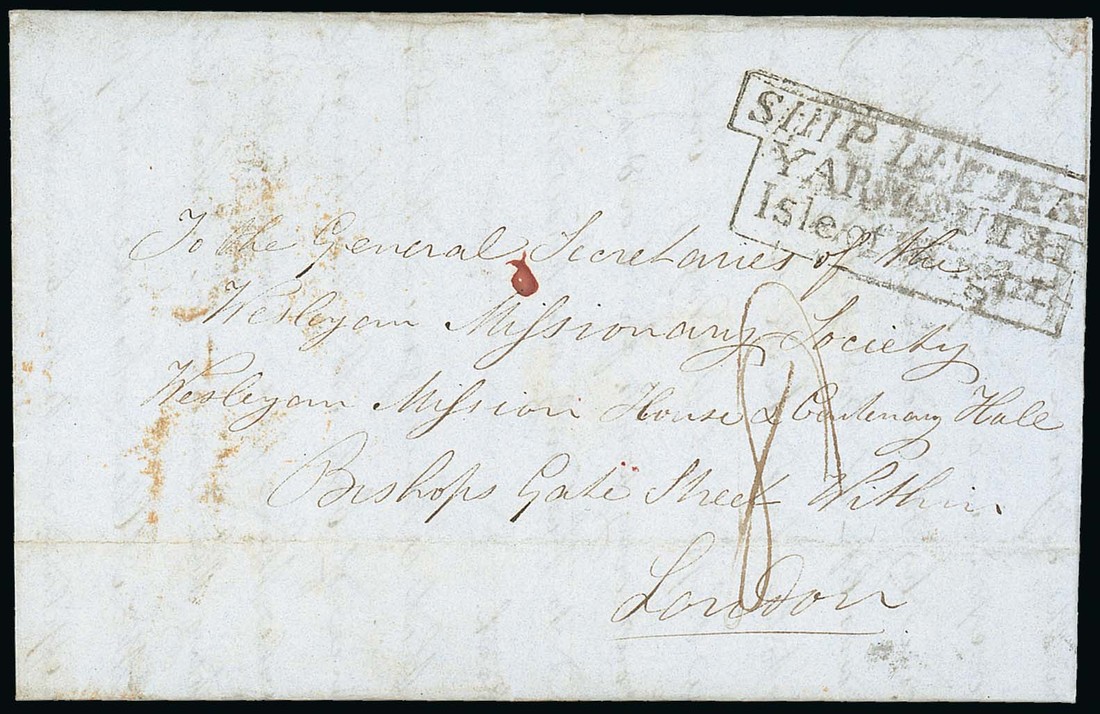 SHIP LETTER
YARMOUTH
Isle of
To the General Secretaries of the
Wesleyan Missionary Society
Wesleyan Mission House & Centenary Hall
Bishops Gate Street Within.
London
8